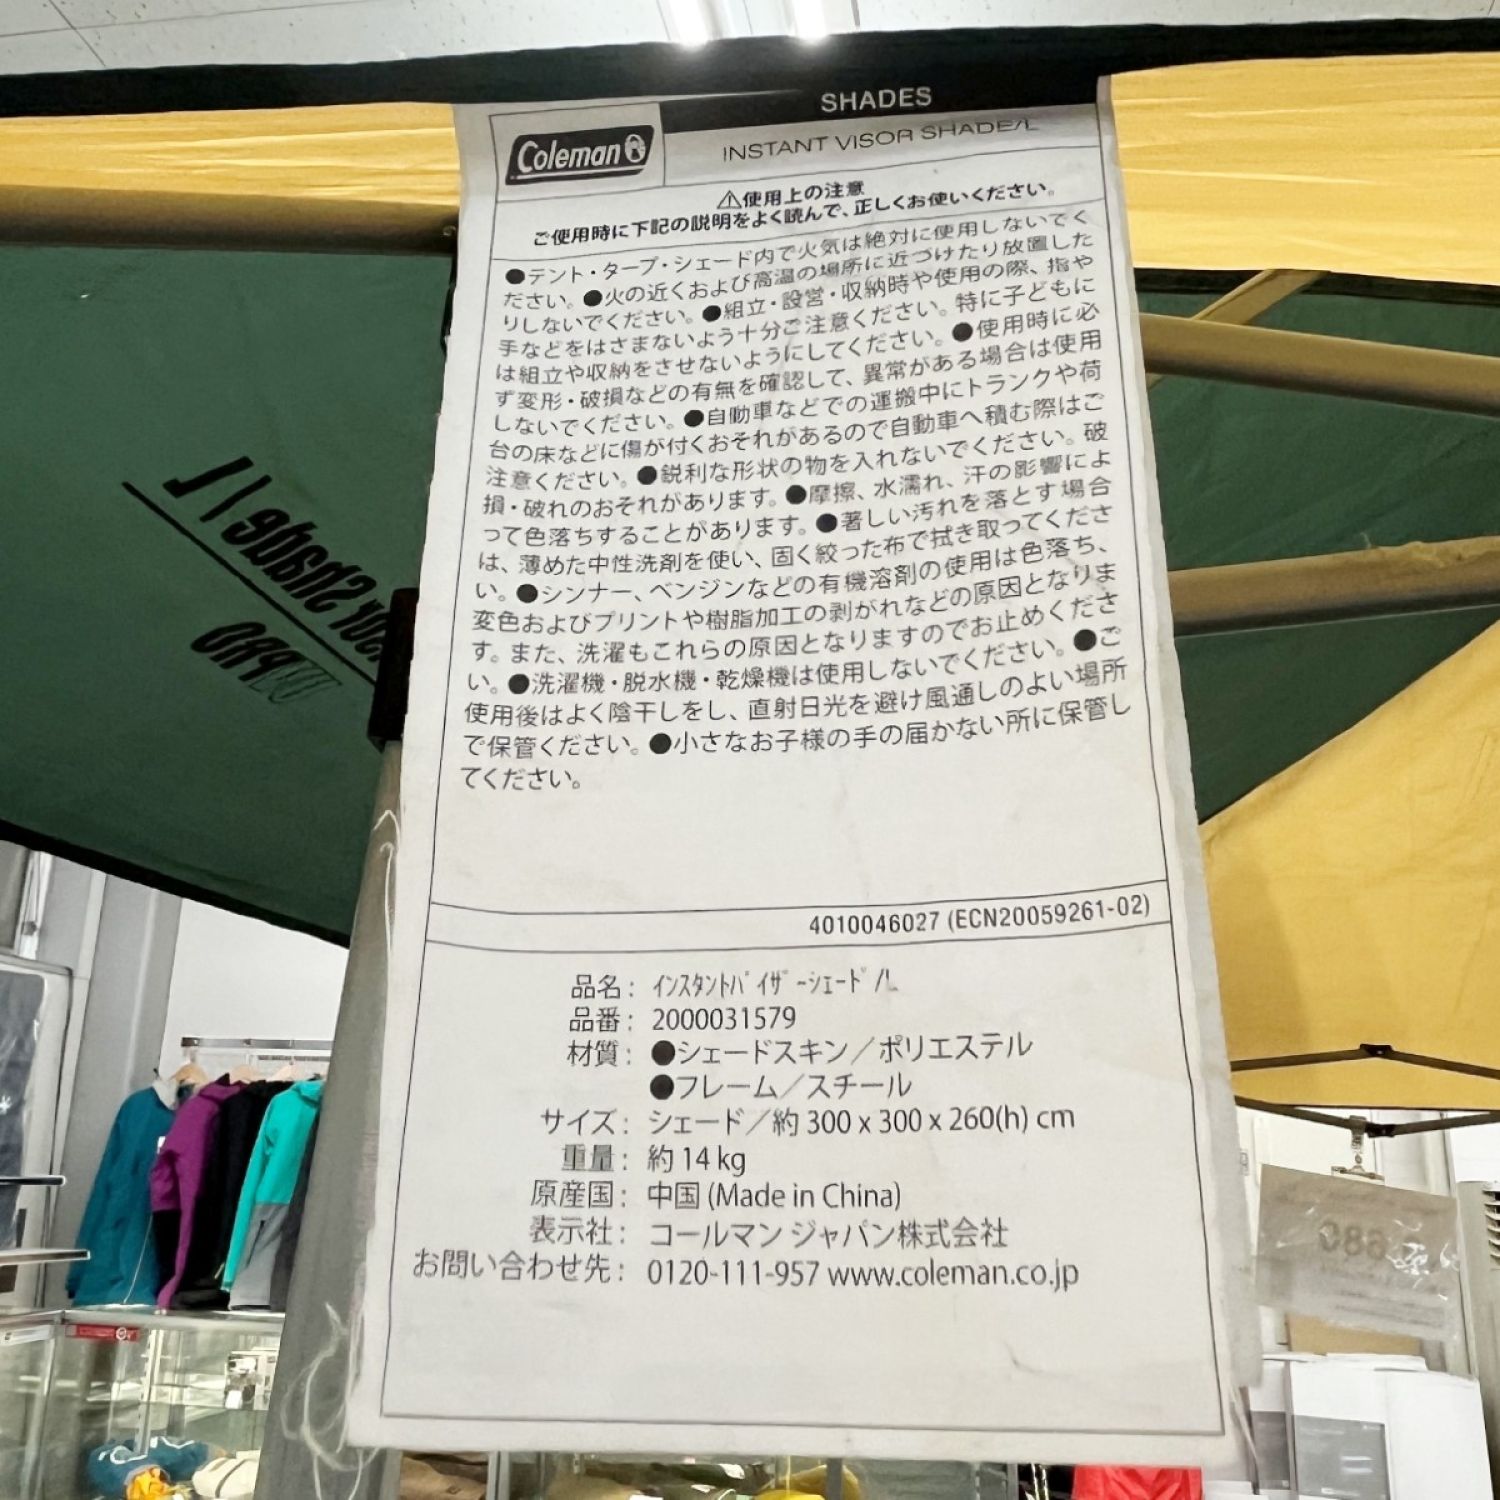 SHADES
Coleman
INSTANT VISOR SHADE/L
⚠使用上の注意
ご使用時に下記の説明をよく読んで、正しくお使いください。
●テント・タープ・シェード内で火気は絶対に使用しないでく
ださい。●火の近くおよび高温の場所に近づけたり放置した
りしないでください。●組立・設営・収納時や使用の際、指や
手などをはさまないよう十分ご注意ください。特に子どもに
は組立や収納をさせないようにしてください。●使用時に必
ず変形・破損などの有無を確認して、異常がある場合は使用
しないでください。●自動車などでの運搬中にトランクや荷
台の床などに傷が付くおそれがあるので自動車へ積む際はご
注意ください。●鋭利な形状の物を入れないでください。破
損・破れのおそれがあります。●摩擦、水濡れ、汗の影響によ
って色落ちすることがあります。●著しい汚れを落とす場合
は、薄めた中性洗剤を使い、固く絞った布で拭き取ってくださ
い。●シンナー、ベンジンなどの有機溶剤の使用は色落ち、
変色およびプリントや樹脂加工の剥がれなどの原因となりま
す。また、洗濯もこれらの原因となりますのでお止めくださ
い。●洗濯機・脱水機・乾燥機は使用しないでください。●ご
使用後はよく陰干しをし、直射日光を避け風通しのよい場所
で保管ください。●小さなお子様の手の届かない所に保管し
てください。
4010046027 (ECN20059261-02)
品名: ｲﾝｽﾀﾝﾄﾊﾞｲｻﾞｰｼｪｰﾄﾞ/L
品番: 2000031579
材質: ●シェードスキン／ポリエステル
●フレーム／スチール
サイズ: シェード／約 300 x 300 x 260(h) cm
重量: 約 14 kg
原産国: 中国 (Made in China)
表示社: コールマン ジャパン株式会社
お問い合わせ先: 0120-111-957 www.coleman.co.jp